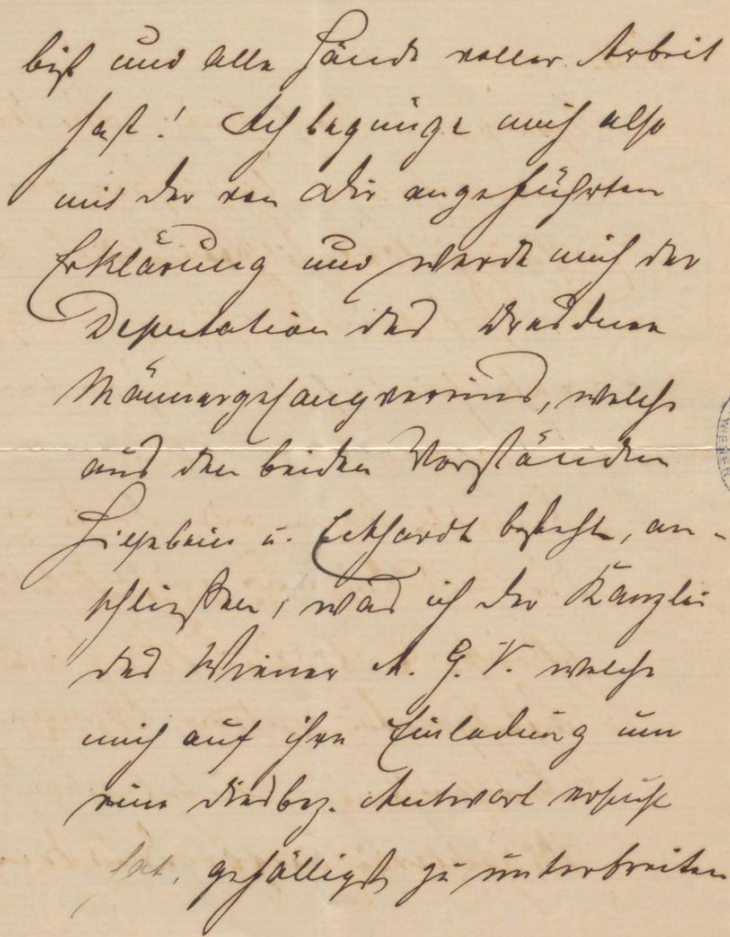 bist und alle Hände voller Arbeit
hast! Ich begnüge mich also
mit der von Dir angeführten
Erklärung und werde mich der
Deputation des Dresdner
Männergesangvereins, welche
aus den beiden Vorständen
u. Eckhardt besteht, an-
schließen, was ich der Kanzlei
des Wiener M. G. V. welche
mich auf ihre Einladung um
eine diesbez. Antwort ersucht
hat, gefälligst zu unterbreiten